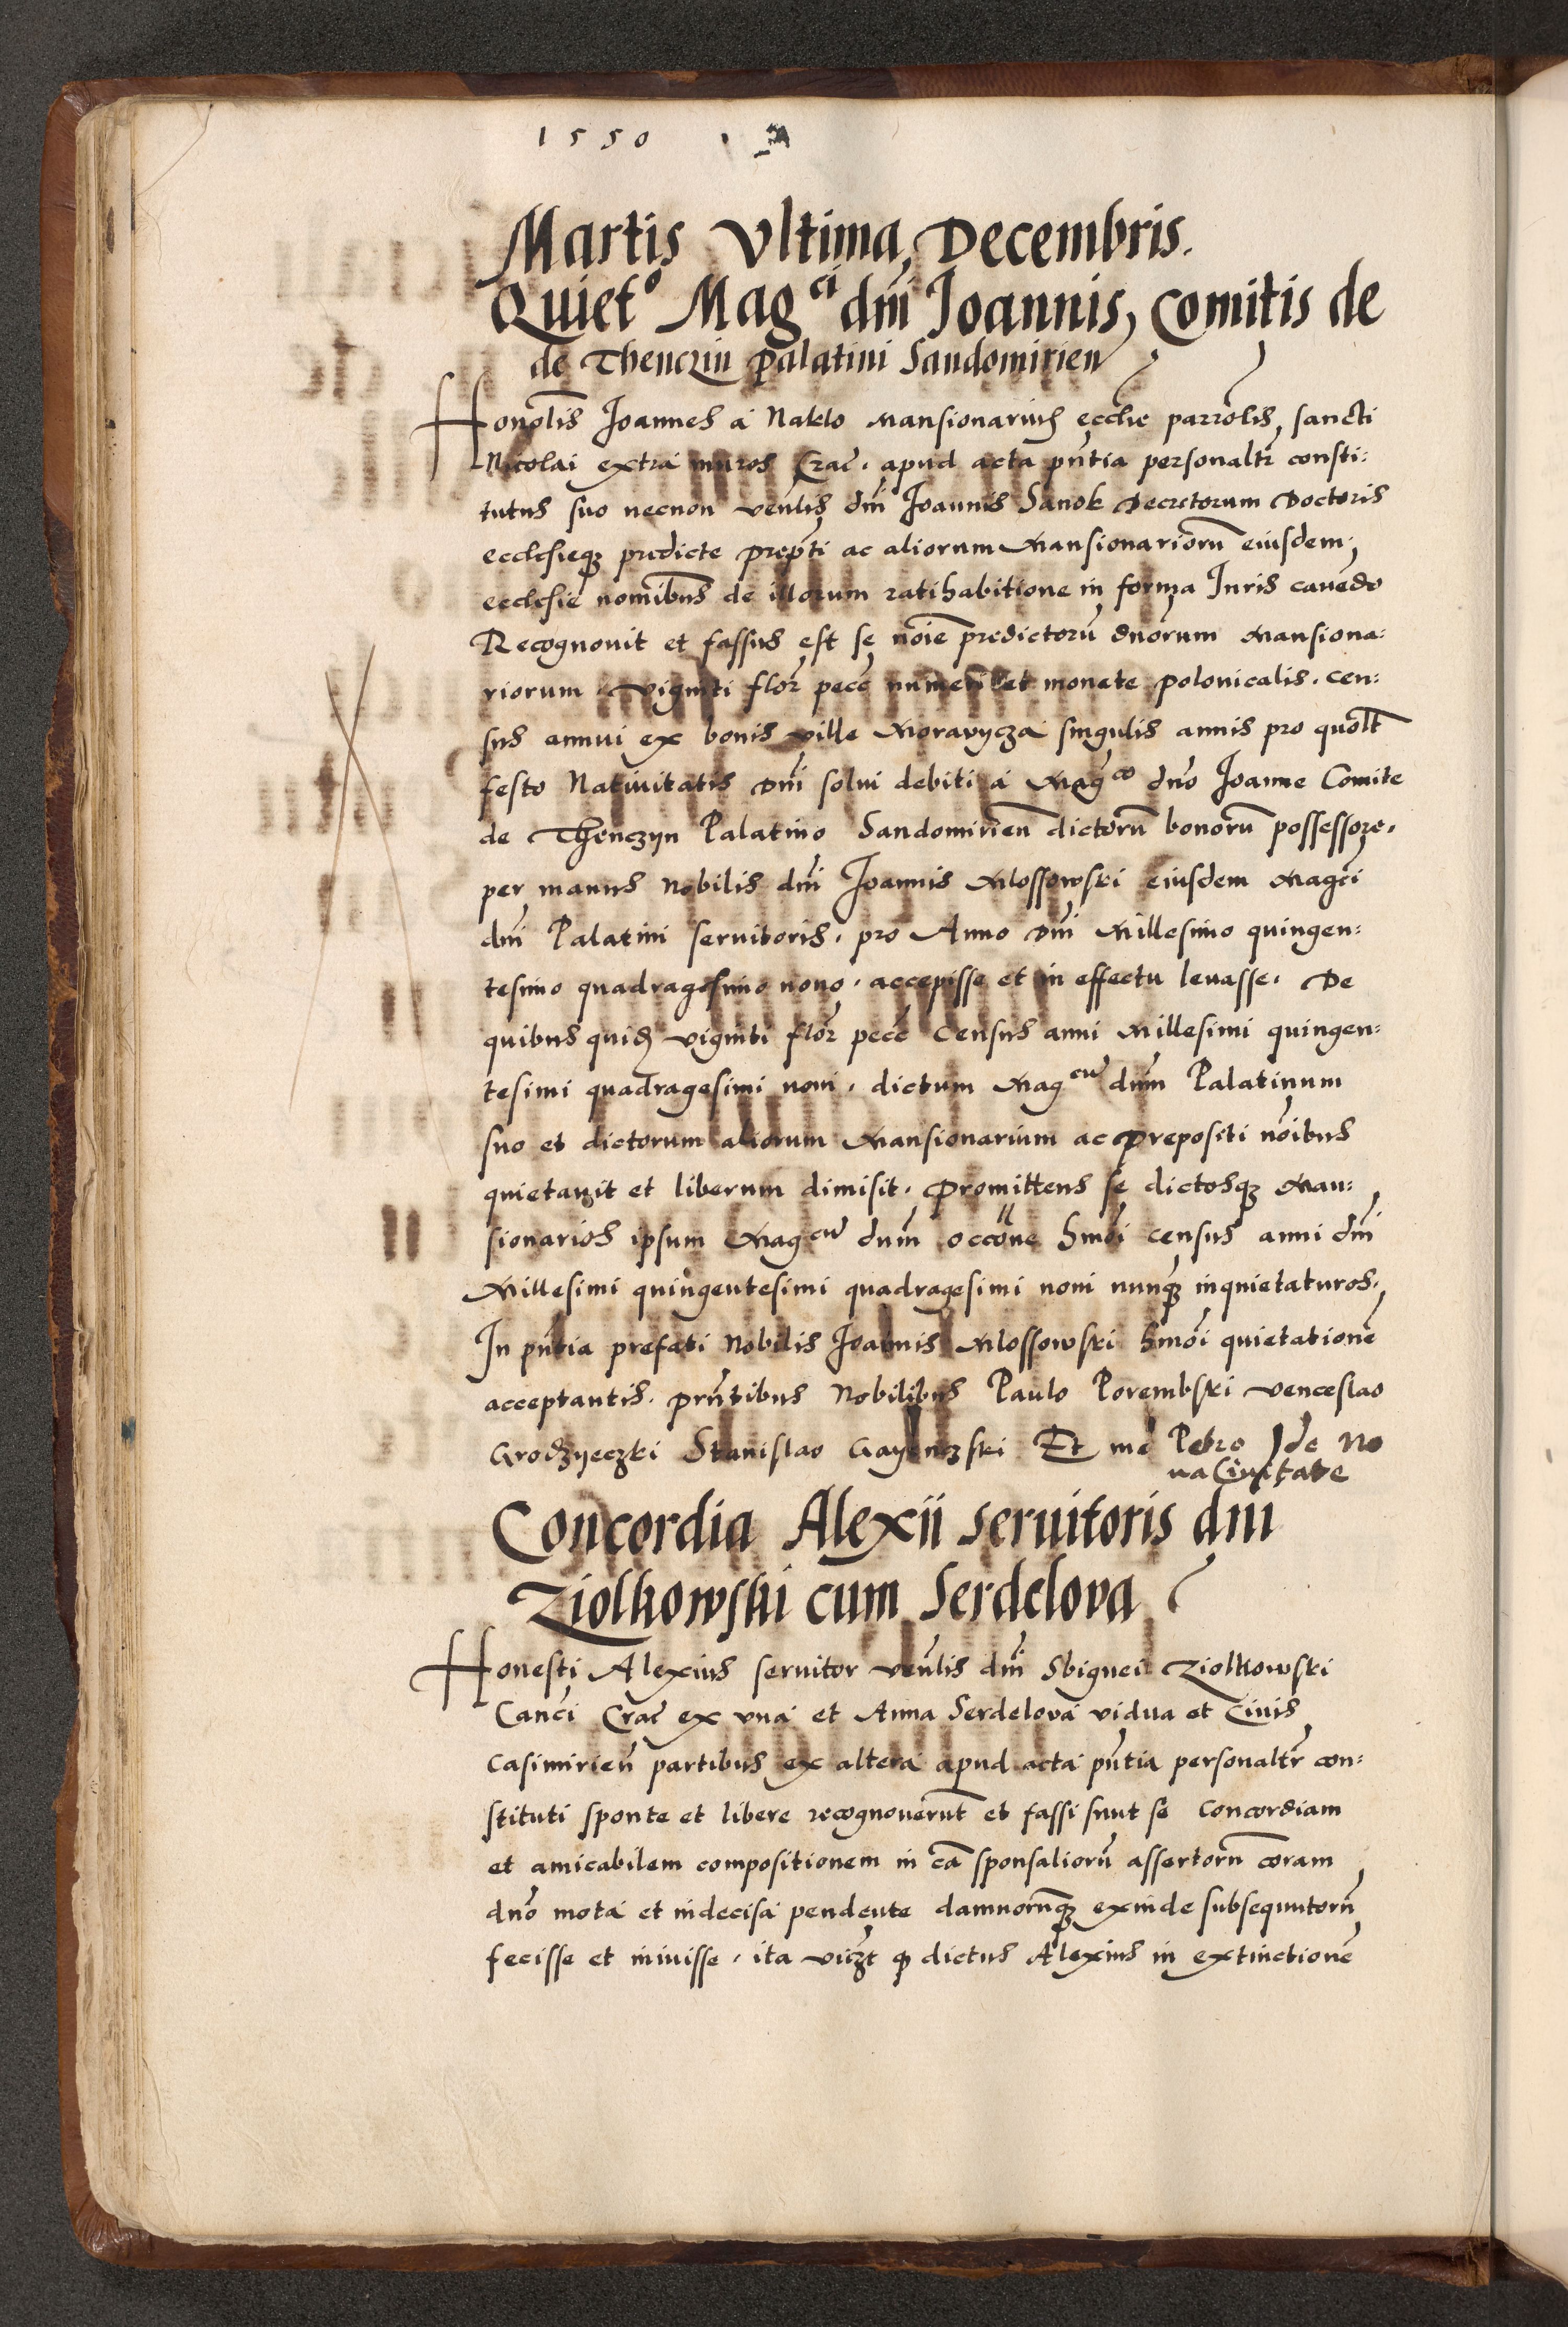 1550
Martis Vltima Decembris.
Quiet° Mag^ci dni Joannis, Comitis de
de Thenczin Palatini Sandomirien
Honolis Joannes a Naklo Mansionarius ecclie parrolis sancti
Nicolai extra muros Crac. apud acta pntia personaltr consti:
tutus suo necnon venlis dni Joannis Sanok Decretorum Doctoris
ecclesieq predicte prepti ac aliorum Mansionarioru eiusdem
ecclesie nomibus de illorum ratihabitione in forma Juris cavedo
Recognouit et fassus est se noie predictoru duorum Mansiona:
riorum viginti flor pecc numeri et monete polonicalis. cen:
sus annui ex bonis ville Moravycza singulis annis pro quolt
festo Natiuitatis Dni solui debiti a Mag^co dno Joanne Comite
de Thenczyn Palatino Sandomirien dictoru bonoru possessore.
per manus Nobilis dni Joannis Mlossowski eiusdem Magci
dni Palatini seruitoris. pro Anno Dni Millesimo quingen:
tesimo quadragesimo nono. accepisse et in effectu leuasse. De
quibus quid viginti flor pecc Census anni Millesimi quingen:
tesimi quadragesimi noni. dictum Mag^cu dnm Palatinum
suo et dictorum aliorum Mansionarium ac Prepositi noibus
quietauit et liberum dimisit. Promittens se dictosq Man:
sionarios ipsum Mag^cu dnm occone hmoi census anni dni
Millesimi quingentesimi quadragesimi noni nunq inquietaturos.
In pntia prefati Nobilis Joannis Mlossowski hmoi quietatione
acceptantis. Prntibus Nobilibus Paulo Porembski Venceslao
Grodzyeczki Stanislao Et me Petro de No
ua Ciuitate
Concordia Alexii seruitoris dni
Ziolkowski cum Serdelova
Honesti Alexius seruitor venlis dni Sbignei Ziolkowski
Canci Crac ex vna et Anna Serdelova vidua et Ciuis
Casimirien partibus ex altera apud acta pntia personaltr con:
stituti sponte et libere recognouerunt et fassi sunt se Concordiam
et amicabilem compositionem in ca sponsalioru assertoru coram
dno mota et indecisa pendente damnorumq exinde subsequutoru
fecisse et iniuisse. ita vidzt q dictus Alexius in extinctione